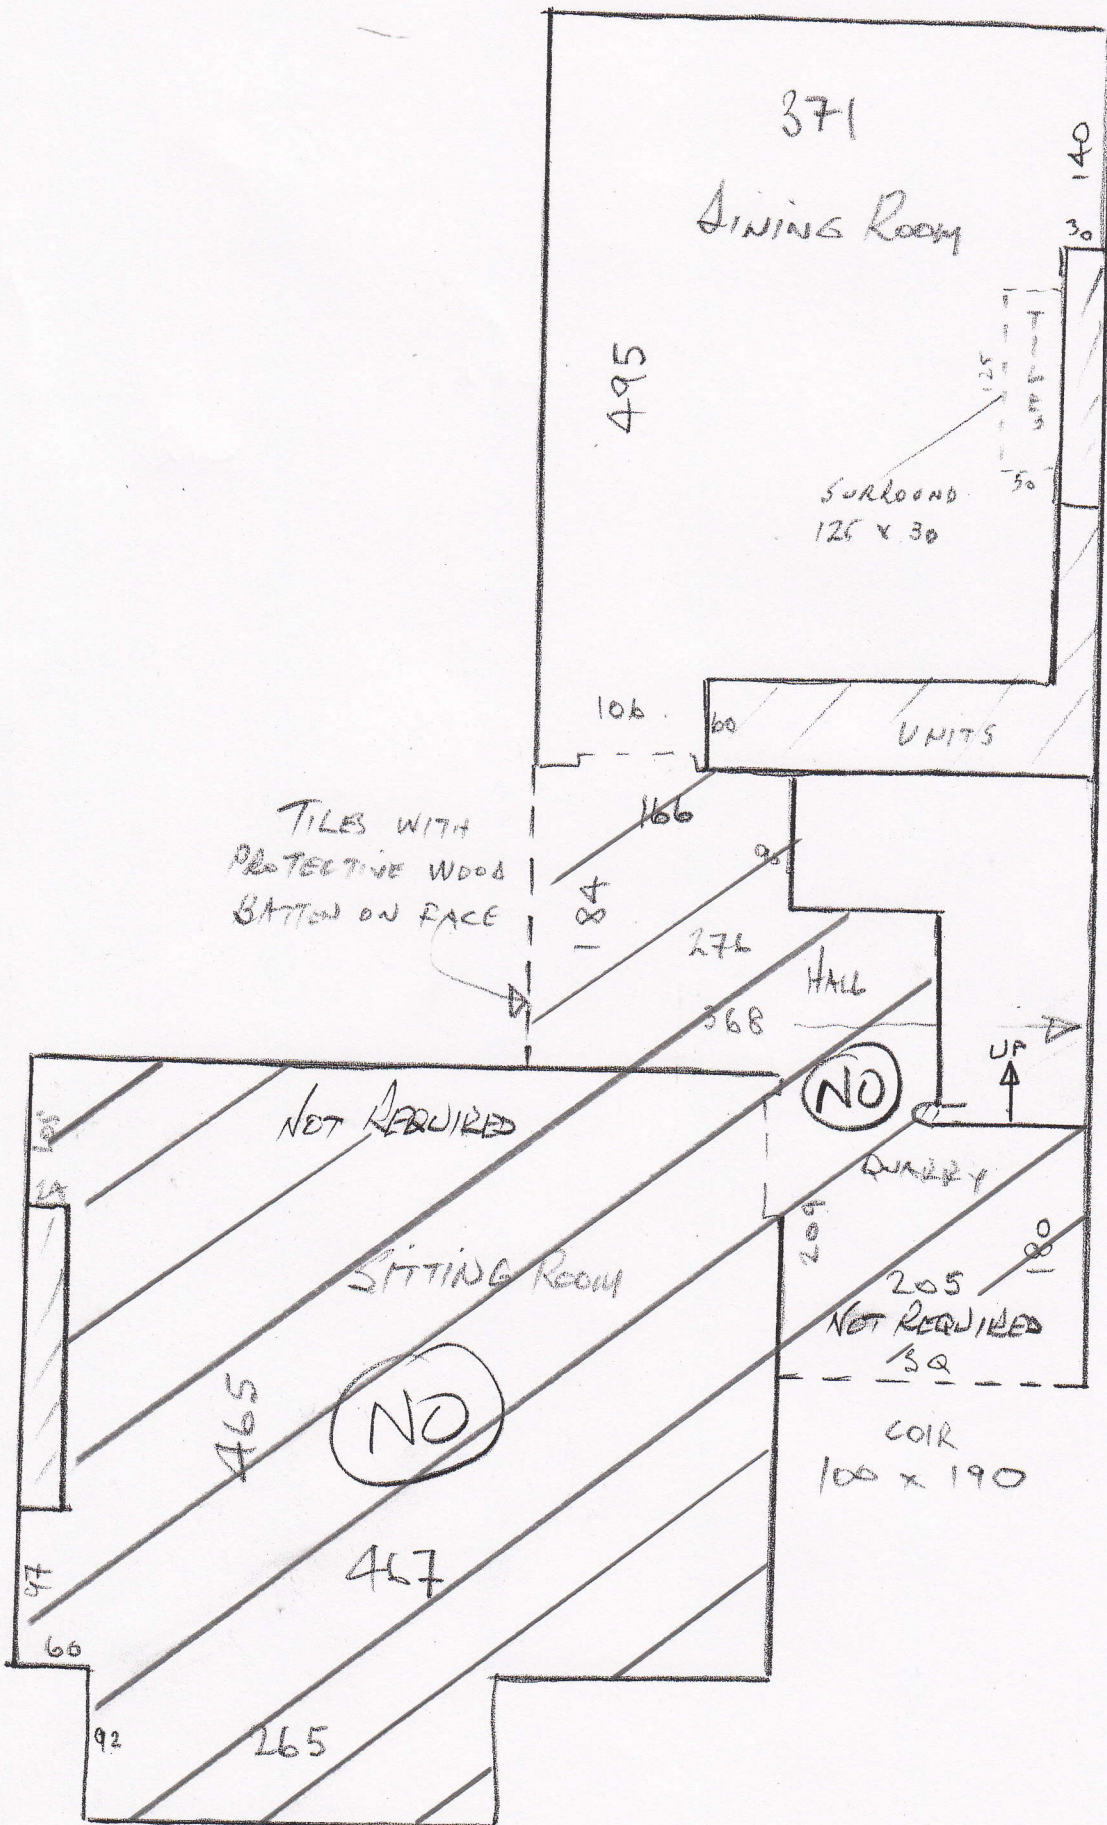 371
140
DINING ROOM
30
495
125
50
SURROUND
125 x 30
106
60
UNITS
166
TILES WITH
PROTECTIVE WOOD
BATTEN ON FACE
184
276
HALL
368
UP
NO
NOT REQUIRED
QUARRY
204
180
SITTING ROOM
205
NOT REQUIRED
465
NO
COIR
100 x 190
467
97
66
92
265